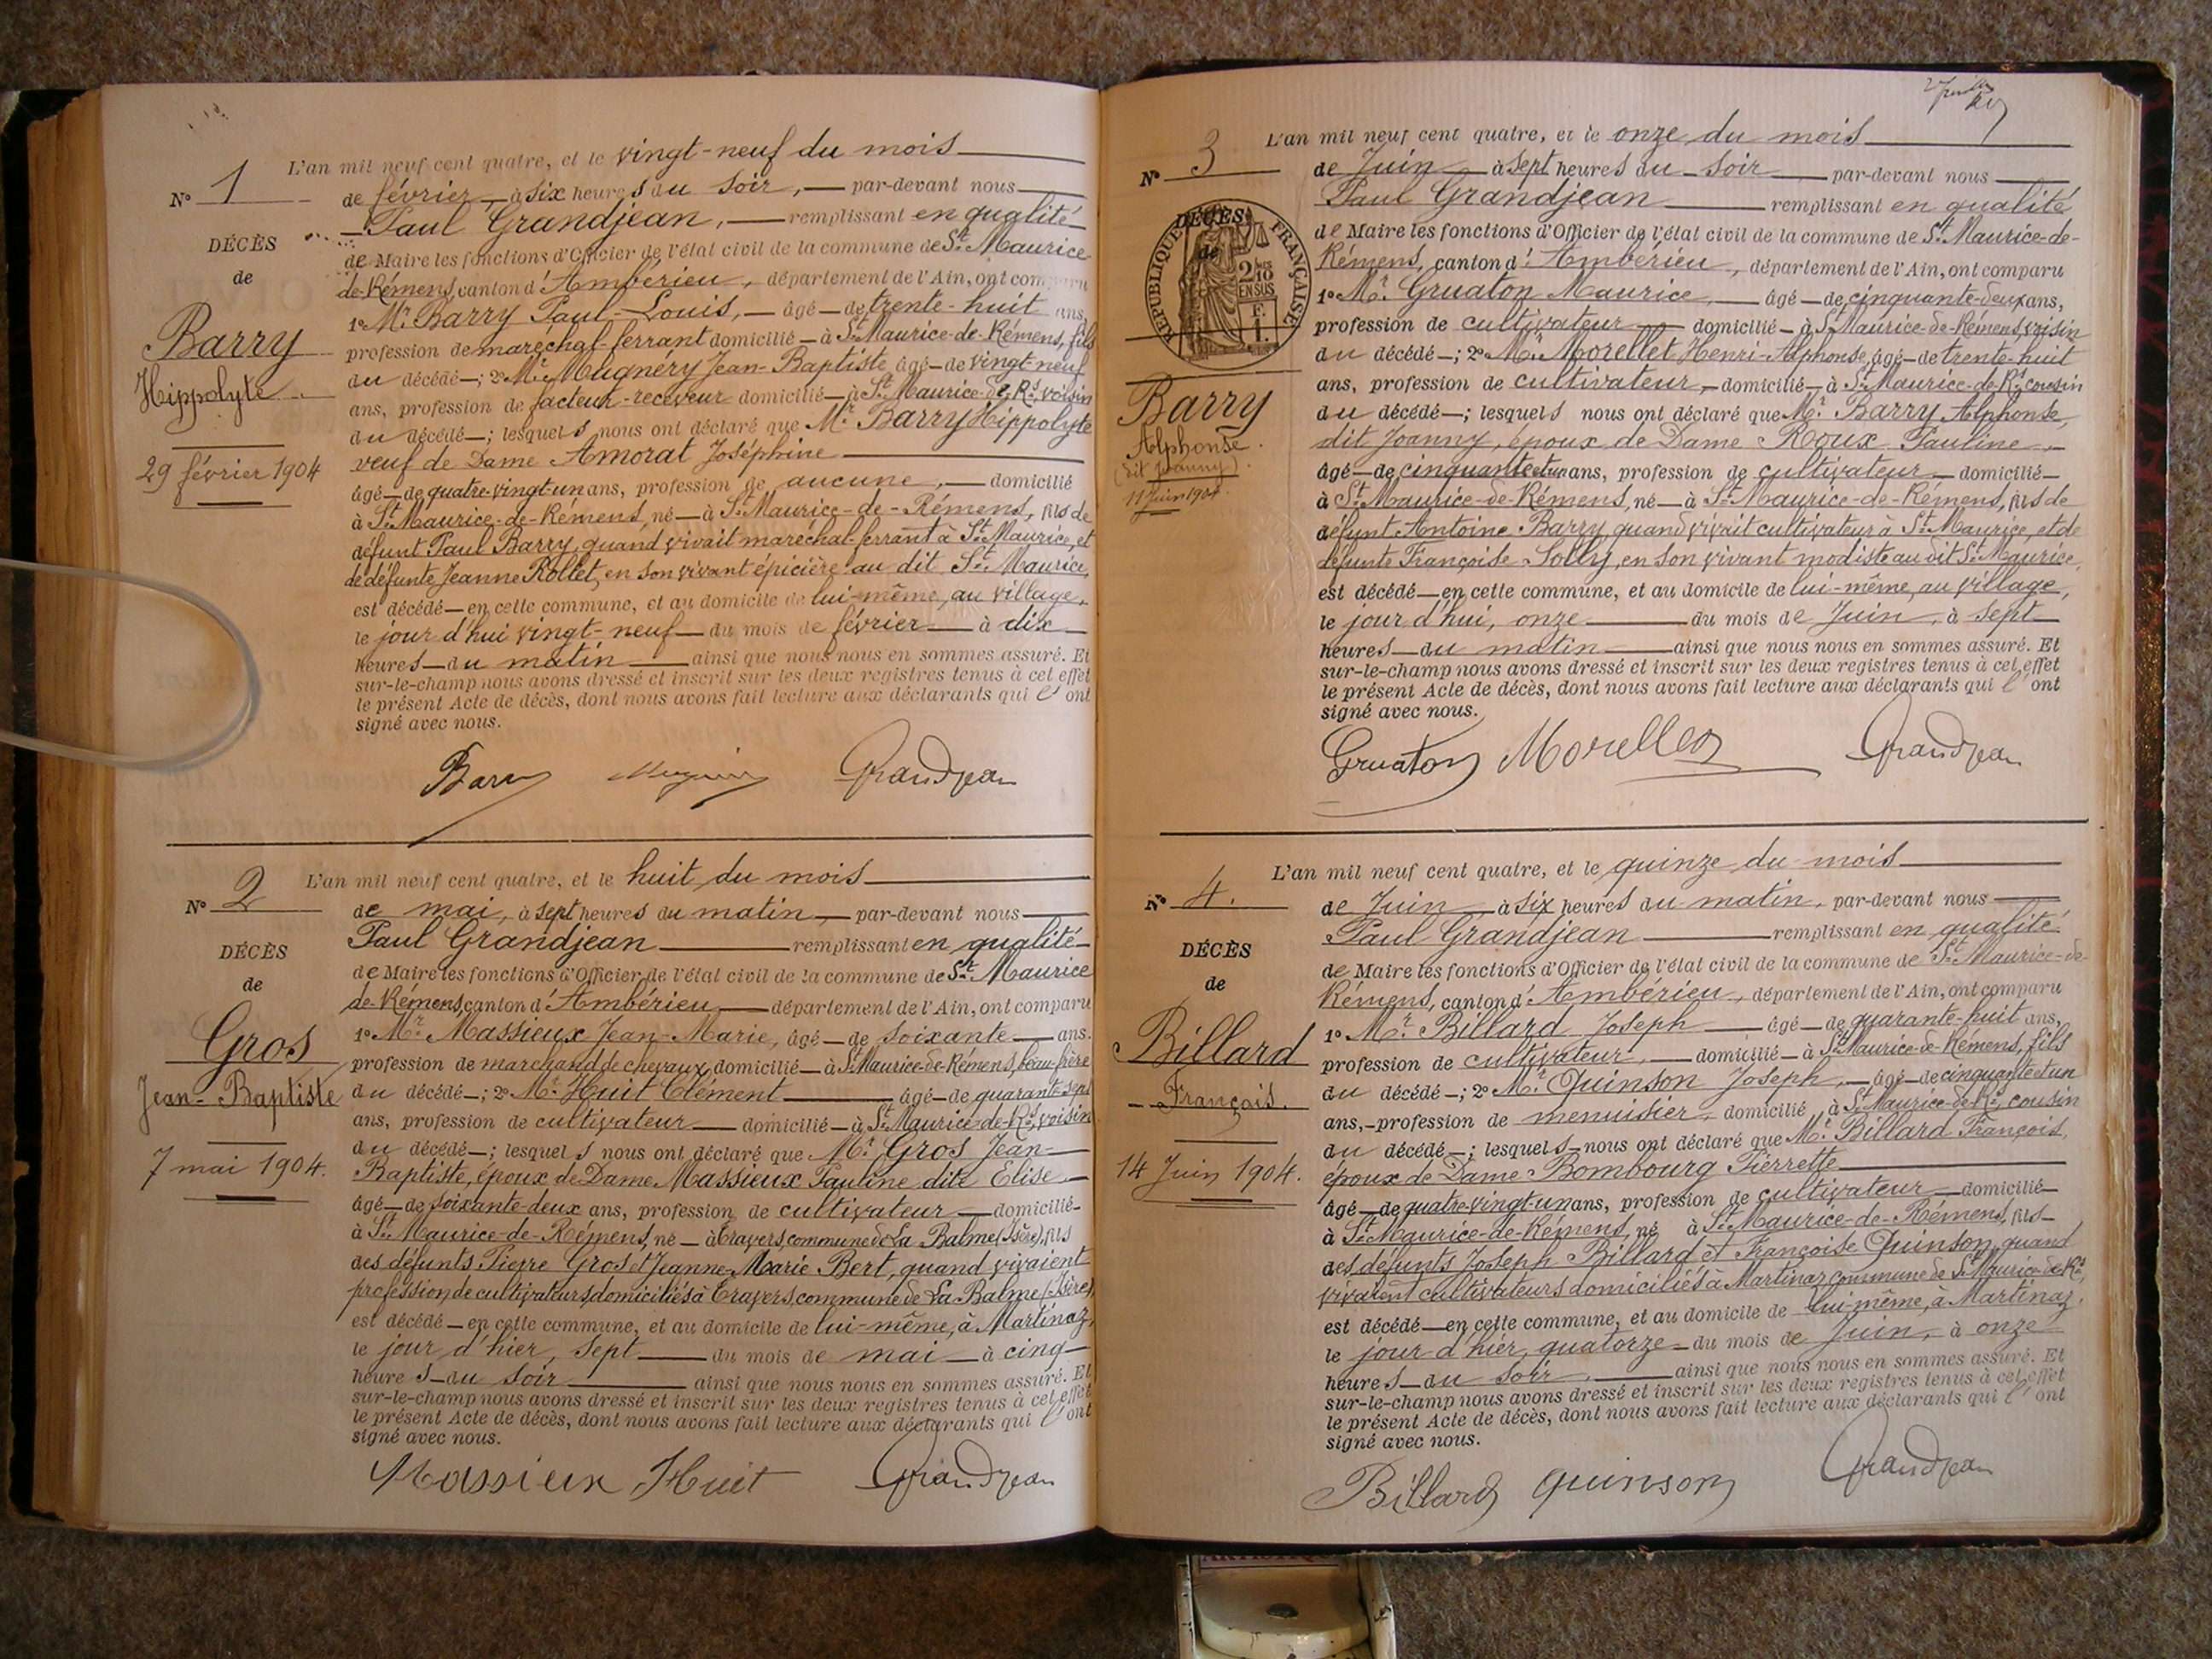 L'an mil neuf cent quatre, et le vingt-neuf du mois
N° 1
de février à six heures du soir, par-devant nous
Paul Grandjean, remplissant en qualité
DÉCÈS
de Maire les fonctions d'Officier de l'état civil de la commune de St Maurice-
de
de-Rémens, canton d'Ambérieu, département de l'Ain, ont comparu
Barry
1° Mr. Barry Paul-Louis, âgé de trente-huit ans,
profession de maréchal-ferrant domicilié à St Maurice-de-Rémens, fils
Hippolyte
du décédé ; 2° Mr. Mugnéry Jean-Baptiste, âgé de vingt-neuf
ans, profession de facteur-receveur domicilié à St Maurice-de-Rs, voisin
du décédé ; lesquels nous ont déclaré que Mr. Barry Hippolyte
29 février 1904
veuf de Dame Amorat Joséphine
âgé de quatre-vingt-un ans, profession de aucune, domicilié
à St Maurice-de-Rémens, né à St Maurice-de-Rémens, fils de
défunt Paul Barry, quand vivait maréchal-ferrant à St Maurice, et
de défunte Jeanne Rollet, en son vivant épicière au dit St Maurice,
est décédé en cette commune, et au domicile de lui-même, au village,
le jour d'hui vingt-neuf du mois de février à dix
heures du matin ainsi que nous nous en sommes assuré. Et
sur-le-champ nous avons dressé et inscrit sur les deux registres tenus à cet effet
le présent Acte de décès, dont nous avons fait lecture aux déclarants qui l'ont
signé avec nous.
Barry Grandjean
L'an mil neuf cent quatre, et le huit du mois
N° 2
de mai, à sept heures du matin, par-devant nous
Paul Grandjean remplissant en qualité
DÉCÈS
de Maire les fonctions d'Officier de l'état civil de la commune de St Maurice
de
de-Rémens, canton d'Ambérieu département de l'Ain, ont comparu
Gros
1° Mr. Massieux Jean-Marie, âgé de soixante ans.
profession de marchand de chevaux, domicilié à St Maurice-de-Rémens, beau-frère
Jean-Baptiste
du décédé ; 2° Mr. Huit Clément âgé de quarante-sept
ans, profession de cultivateur domicilié à St Maurice-de-Rs, voisin
du décédé ; lesquels nous ont déclaré que Mr. Gros Jean-
7 mai 1904.
Baptiste, époux de Dame Massieux Pauline dite Elise,
âgé de soixante-deux ans, profession de cultivateur domicilié
à St Maurice-de-Rémens, né à Travers, commune de La Balme (Isère), fils
des défunts Pierre Gros et Jeanne-Marie Bert, quand vivaient
profession de cultivateurs, domiciliés à Travers, commune de La Balme (Isère),
est décédé en cette commune, et au domicile de lui-même, à Martinaz,
le jour d'hier, sept du mois de mai à cinq
heures du soir ainsi que nous nous en sommes assuré. Et
sur-le-champ nous avons dressé et inscrit sur les deux registres tenus à cet effet
le présent Acte de décès, dont nous avons fait lecture aux déclarants qui l'ont
signé avec nous.
Massieux Huit Grandjean
L'an mil neuf cent quatre, et le onze du mois
N° 3
de Juin à sept heures du soir par-devant nous
Paul Grandjean remplissant en qualité
DÉCÈS
de Maire les fonctions d'Officier de l'état civil de la commune de St Maurice-de-
de
RÉPUBLIQUE FRANÇAISE
2/10 EN SUS
F. 1.
Rémens, canton d'Ambérieu, département de l'Ain, ont comparu
1° Mr. Gruaton Maurice, âgé de cinquante-deux ans,
profession de cultivateur domicilié à St Maurice-de-Rémens, voisin
du décédé ; 2° Mr. Morellet Henri-Alphonse, âgé de trente-huit
ans, profession de cultivateur, domicilié à St Maurice-de-Rs cousin
Barry
du décédé ; lesquels nous ont déclaré que Mr. Barry Alphonse,
Alphonse.
dit Joanny, époux de Dame Roux Pauline,
(dit Joanny).
âgé de cinquante et un ans, profession de cultivateur domicilié
11 Juin 1904.
à St Maurice-de-Rémens, né à St Maurice-de-Rémens, fils de
défunt Antoine Barry, quand vivait cultivateur à St Maurice, et de
défunte Françoise Solly, en son vivant modiste au dit St Maurice,
est décédé en cette commune, et au domicile de lui-même, au village,
le jour d'hui, onze du mois de Juin, à sept
heures du matin ainsi que nous nous en sommes assuré. Et
sur-le-champ nous avons dressé et inscrit sur les deux registres tenus à cet effet
le présent Acte de décès, dont nous avons fait lecture aux déclarants qui l'ont
signé avec nous.
Gruaton Morellet Grandjean
L'an mil neuf cent quatre, et le quinze du mois
N° 4.
de Juin à six heures du matin, par-devant nous
Paul Grandjean remplissant en qualité
DÉCÈS
de Maire les fonctions d'Officier de l'état civil de la commune de St Maurice-de-
de
Rémens, canton d'Ambérieu, département de l'Ain, ont comparu
Billard
1° Mr. Billard Joseph âgé de quarante-huit ans,
profession de cultivateur, domicilié à St Maurice-de-Rémens, fils
François.
du décédé ; 2° Mr. Quinson Joseph, âgé de cinquante et un
ans, profession de menuisier, domicilié à St Maurice-de-Rs, cousin
du décédé ; lesquels nous ont déclaré que Mr. Billard François,
14 Juin 1904.
époux de Dame Bombourg Pierrette
âgé de quatre-vingt-un ans, profession de cultivateur domicilié
à St Maurice-de-Rémens, né à St Maurice-de-Rémens, fils
des défunts Joseph Billard et Françoise Quinson, quand
vivaient cultivateurs domiciliés à Martinaz, commune de St Maurice-de-Rs,
est décédé en cette commune, et au domicile de lui-même, à Martinaz,
le jour d'hier, quatorze du mois de Juin, à onze
heures du soir, ainsi que nous nous en sommes assuré. Et
sur-le-champ nous avons dressé et inscrit sur les deux registres tenus à cet effet
le présent Acte de décès, dont nous avons fait lecture aux déclarants qui l'ont
signé avec nous.
Billard Quinson Grandjean